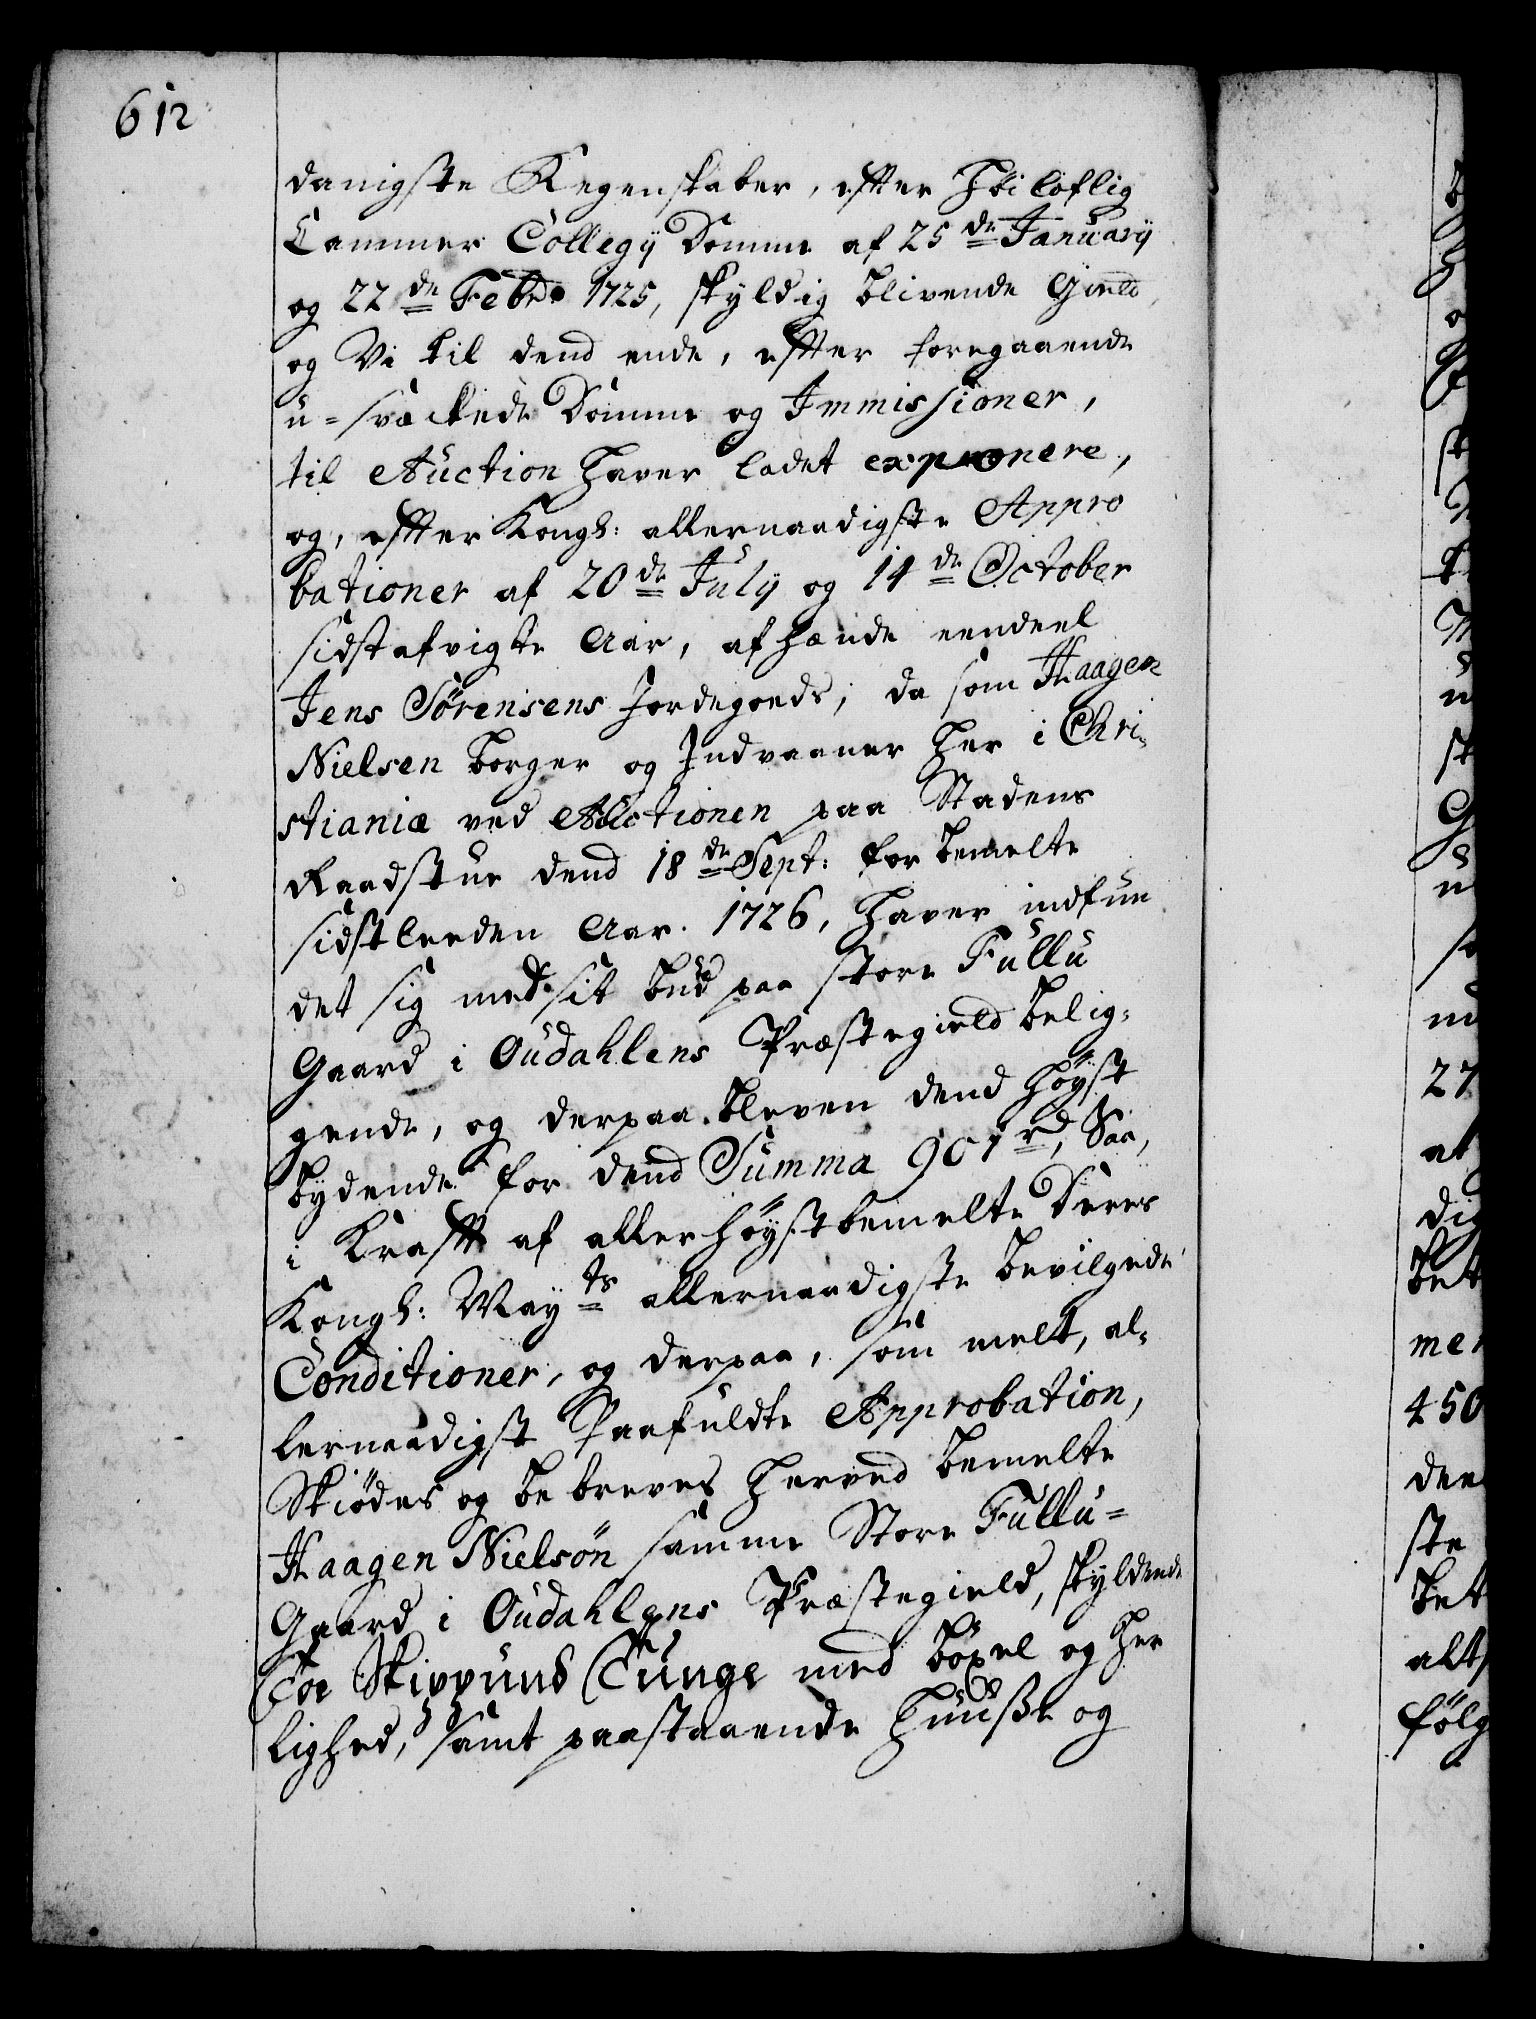 612
danigste Regenskaber, efter Høiloflig
Cammer Collegij Domme af 25de Januarij
og 22de Febr: 1725, skyldig blivende Gield,
og Vi til dend ende, efter foregaaende
u=svækede Domme og Immissioner,
til Auction haver ladet exponere,
og, efter Kongl: allernaadigste Appro
bationer af 20de Julij og 14de October
sidstafvigte Aar, afhænde eendeel
Jens Sörensens Jordegoeds; da som Haagen
Nielsen borger og Indvaaner her i Chri„
stiania ved Auctionen paa Stadens
Raadstue dend 18de Sept: forbemelte
sidstleeden Aar. 1726, haver indfun
det sig med sit bud paa store Fullu
Gaard i Oudahlens Præstegield belig„
gende, og derpaa bleven dend høyst
bydende for dend Summa 901 rd, Saa,
i Krafft af allerhøystbemelte Deres
Kongl: Mayts allernaadigste bevilgede
Conditioner, og derpaa, som melt, al„
lernaadigst Paafuldte Approbation,
Skiödes og bebreves herved bemelte
Haagen Nielsön samme Store Fullu=
Gaard i Oudahlens Præstegield, skyldende
Toe Skippund Tunge med böxel og her
lighed, samt paastaaende Huuße og
27
at
dig
bet
mer
450
den
ste
bet
alt
følg